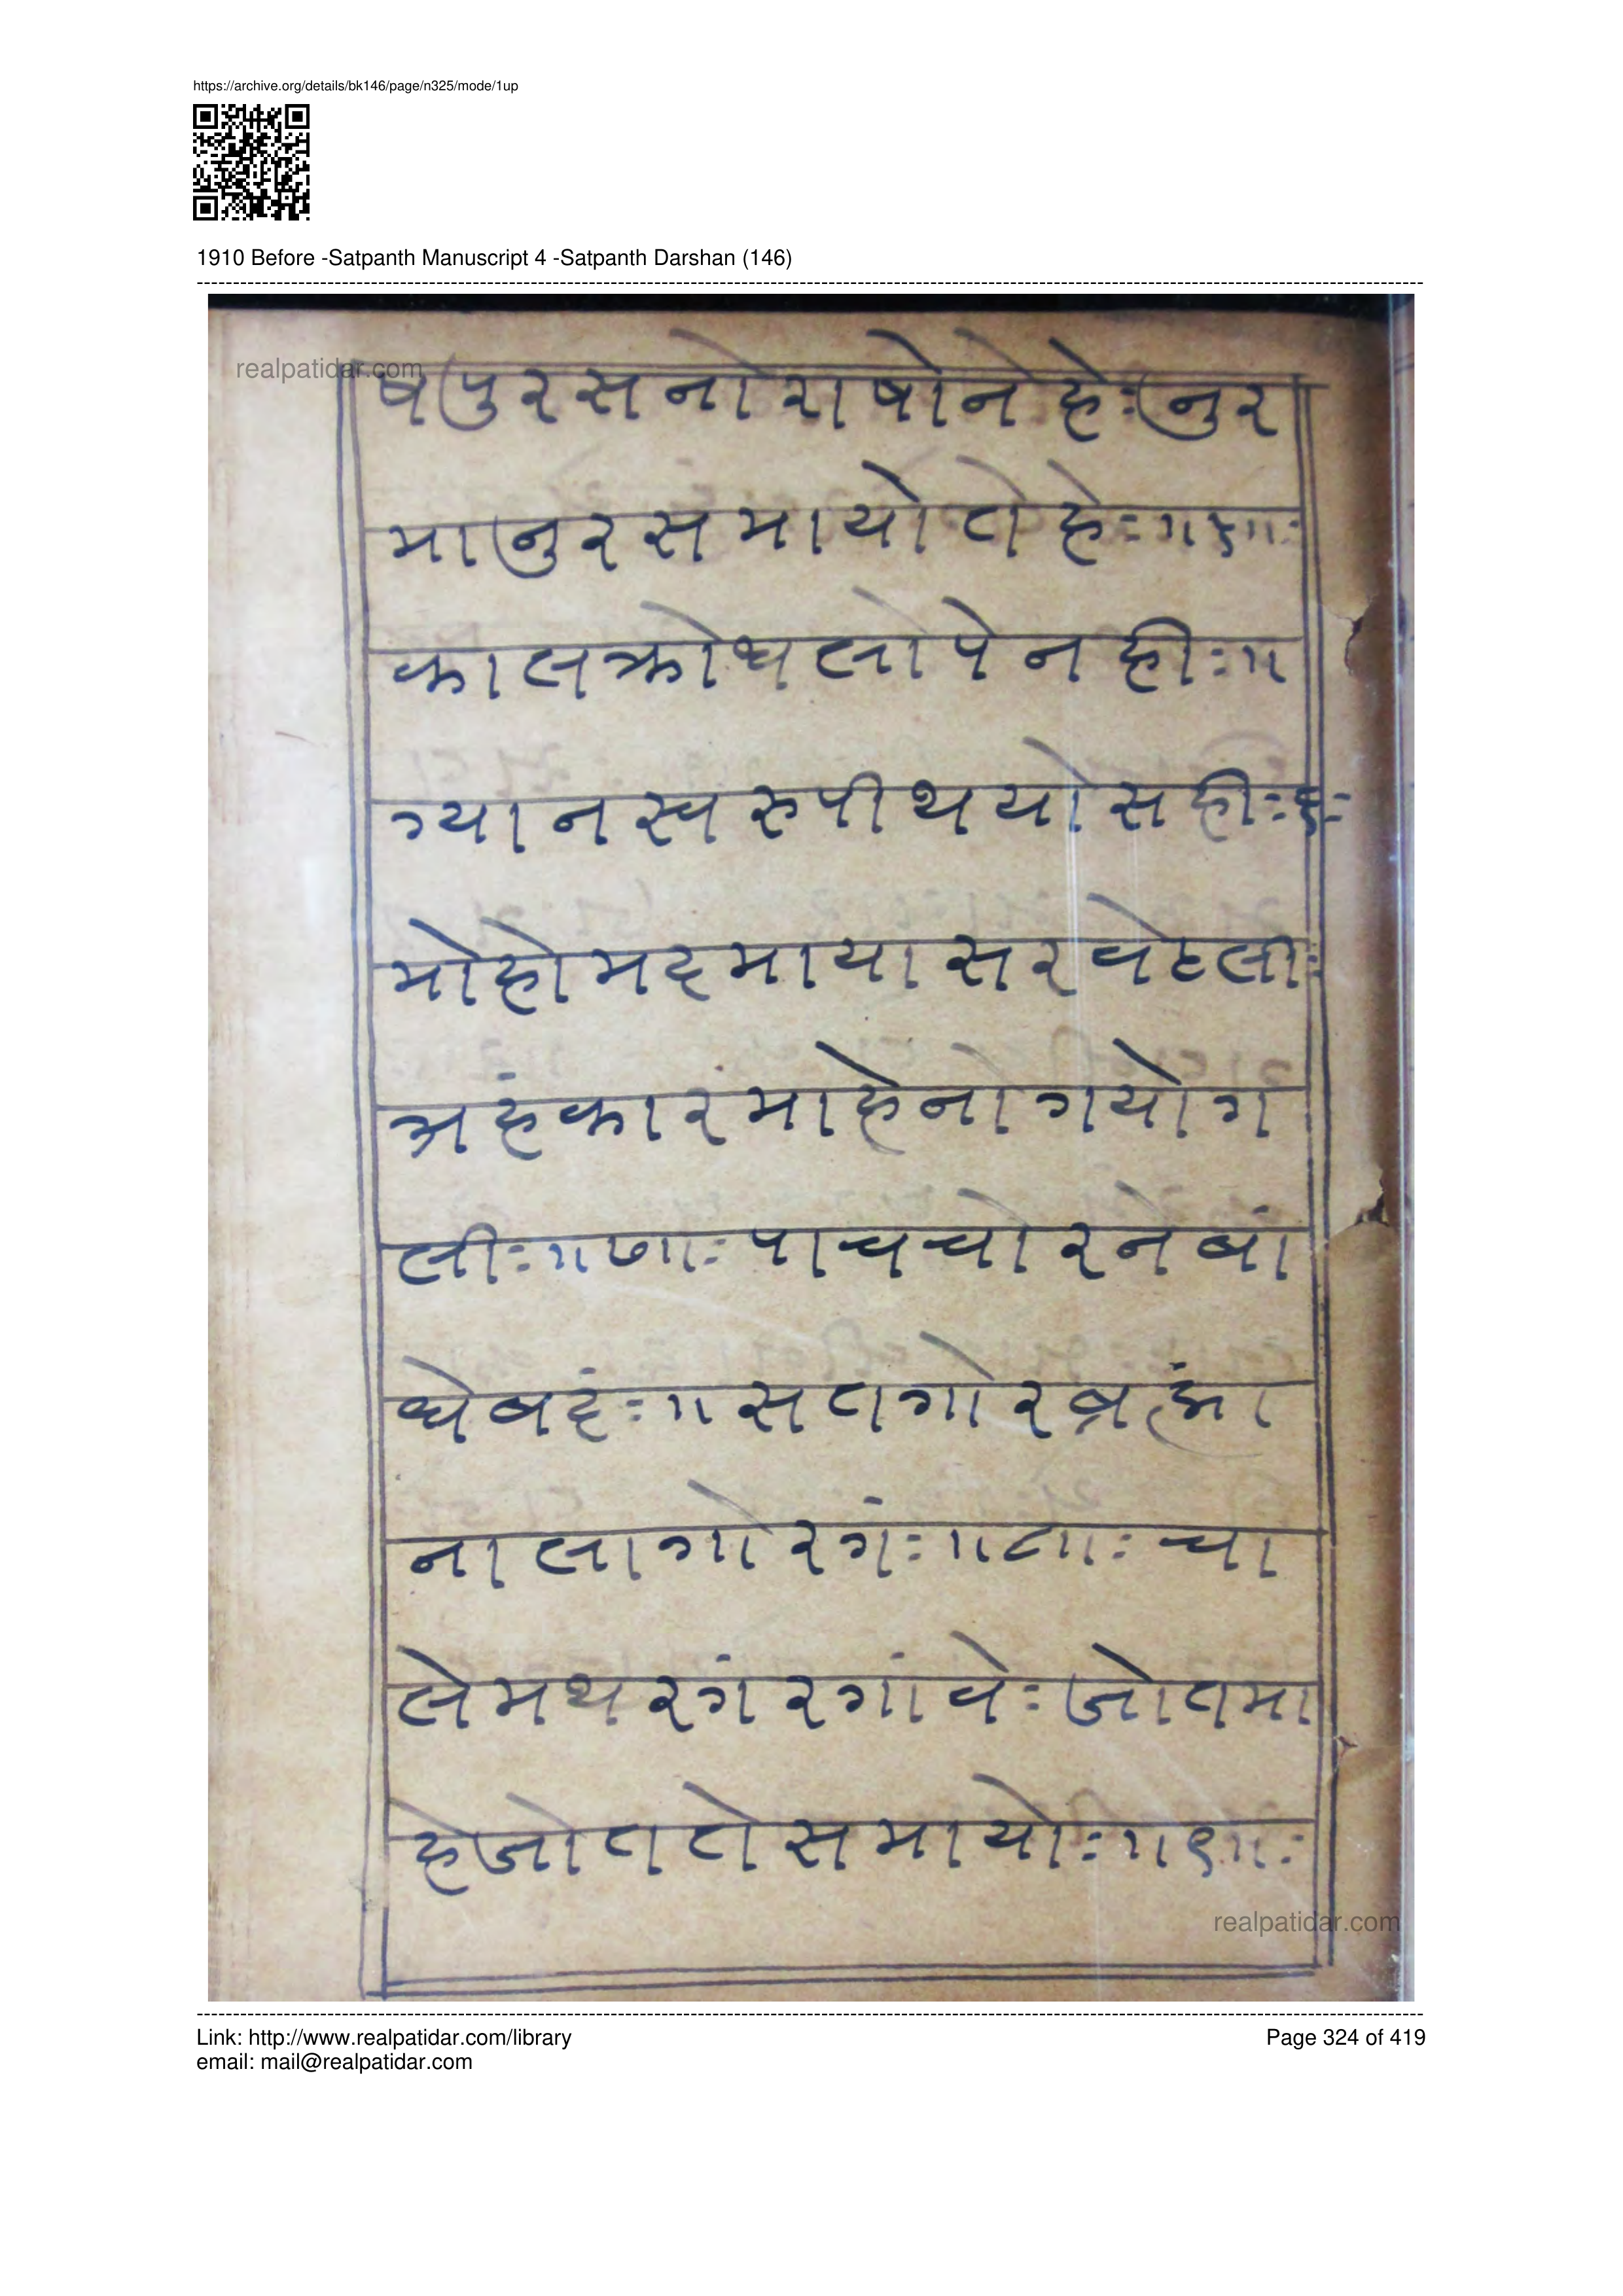 https://archive.org/details/bk146/page/n325/mode/1up
1910 Before -Satpanth Manuscript 4 -Satpanth Darshan (146)
realpatidar.com
षपुरसनोराषोनेहेः नुर
मानुरसमायोतोहेः ॥५॥ः
कालक्रोधलोपेनहीः ॥
ग्यानस्वरुपीथयोसहीः ६ः
मोहोमदमायासरवेटलीः
अहंकारंमाहेनोगयोग
लीः ॥७॥ः पाचचोरनेबां
धेबदंः ॥ सतगोरब्रह्मा
नालागोरगंः ॥८॥ः चा
लेमथरगंरगांवेः जोतमा
हेजोततोसमायोः ॥९॥ः
realpatidar.com
Link: http://www.realpatidar.com/library
Page 324 of 419
email: mail@realpatidar.com